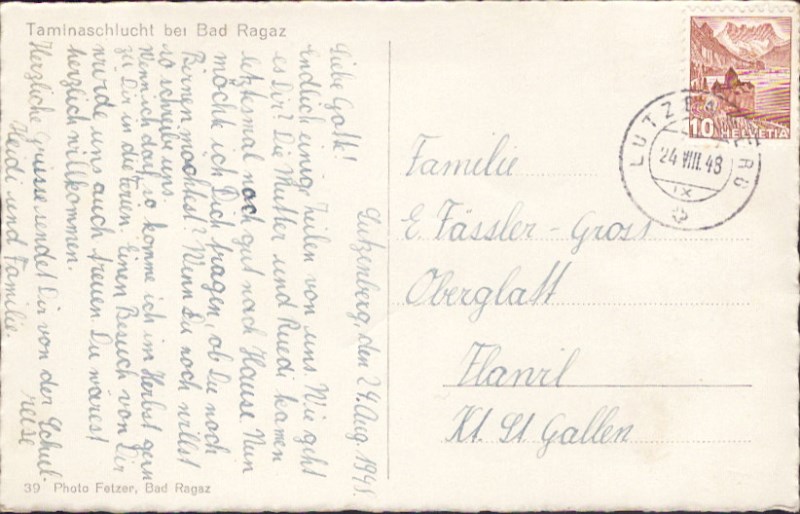 Taminaschlucht bei Bad Ragaz
Lutzenberg, den 24. Aug. 1948.
Liebe Gotte!
Endlich einige Zeilen von uns. Wie geht
es Dir? Die Mutter und Ruedi kamen
letztesmal noch gut nach Hause. Nun
möchte ich Dich fragen, ob Du noch
Birnen möchtest? Wenn Du noch willst
so schreibe uns.
Wenn ich darf, so komme ich im Herbst gern
zu Dir in die Ferien. Einen Besuch von Dir
würde uns auch freuen. Du wärest
herzlich willkommen.
Herzliche Grüsse sendet Dir von der Schul-
reise
Heidi und Familie
39 Photo Fetzer, Bad Ragaz
HELVETIA
10
LUTZENBERG
24.VIII.48
IX
Familie
E. Fässler-Gross
Oberglatt
Flawil
Kt. St. Gallen